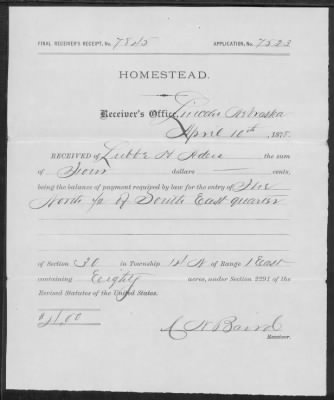 FINAL RECEIVER'S RECEIPT, No. 7845 APPLICATION, No. 7523
HOMESTEAD.
Receiver's Office, Lincoln Nebraska
April 10th, 1878.
RECEIVED of Lubbe H the sum
of Four dollars cents,
being the balance of payment required by law for the entry of The
North ½ of South East quarter
of Section 30 in Township 12 N of Range 1 East
containing Eighty acres, under Section 2291 of the
Revised Statutes of the United States.
$4.00
Receiver.